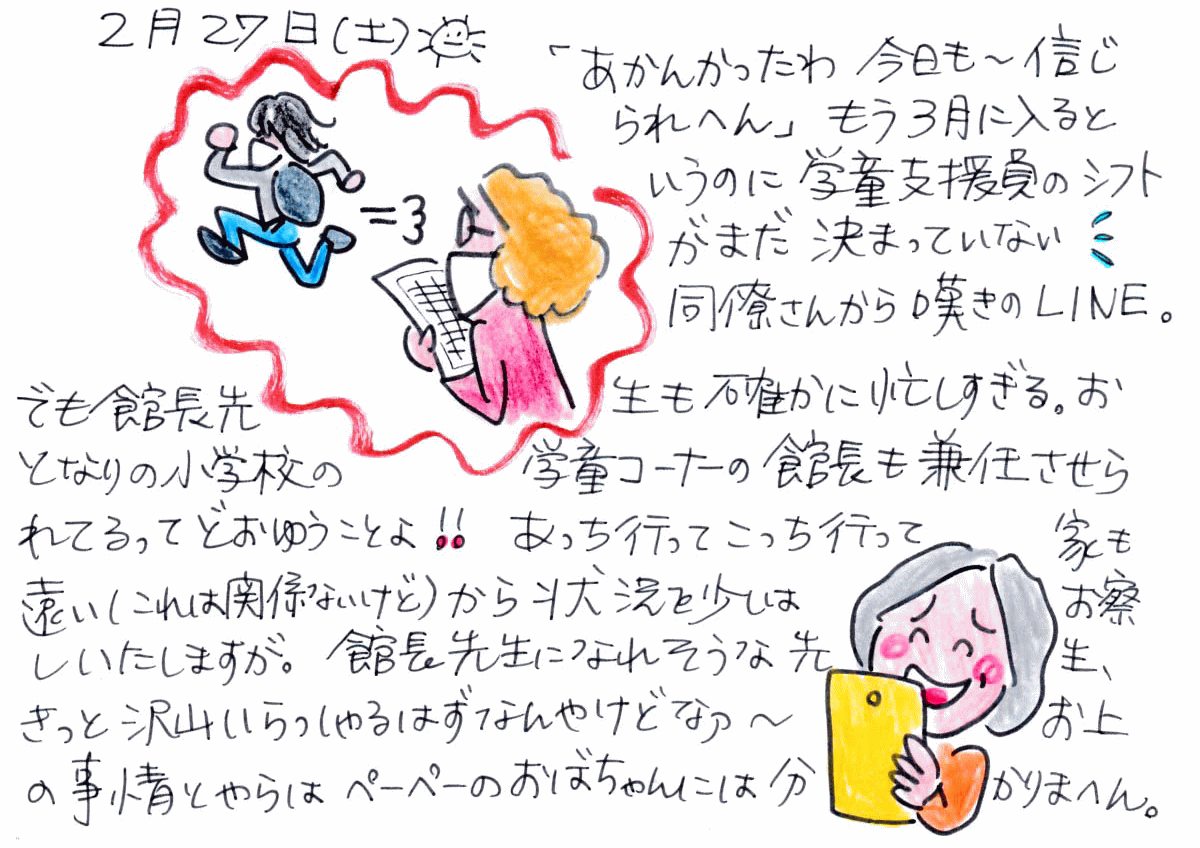 2月27日(土)
「あかんかったわ 今日も~信じ
られへん」もう3月に入ると
いうのに学童支援員のシフト
がまだ決まっていない
同僚さんから嘆きのLINE。
でも館長先生も確かに忙しすぎる。お
となりの小学校の学童コーナーの館長も兼任させら
れてるってどおゆうことよ!! あっち行ってこっち行って家も
遠い(これは関係ないけど)から状況を少しはお察
しいたしますが。館長先生になれそうな先生、
きっと沢山いらっしゃるはずなんやけどなァ~お上
の事情とやらはペーペーのおばちゃんには分かりまへん。